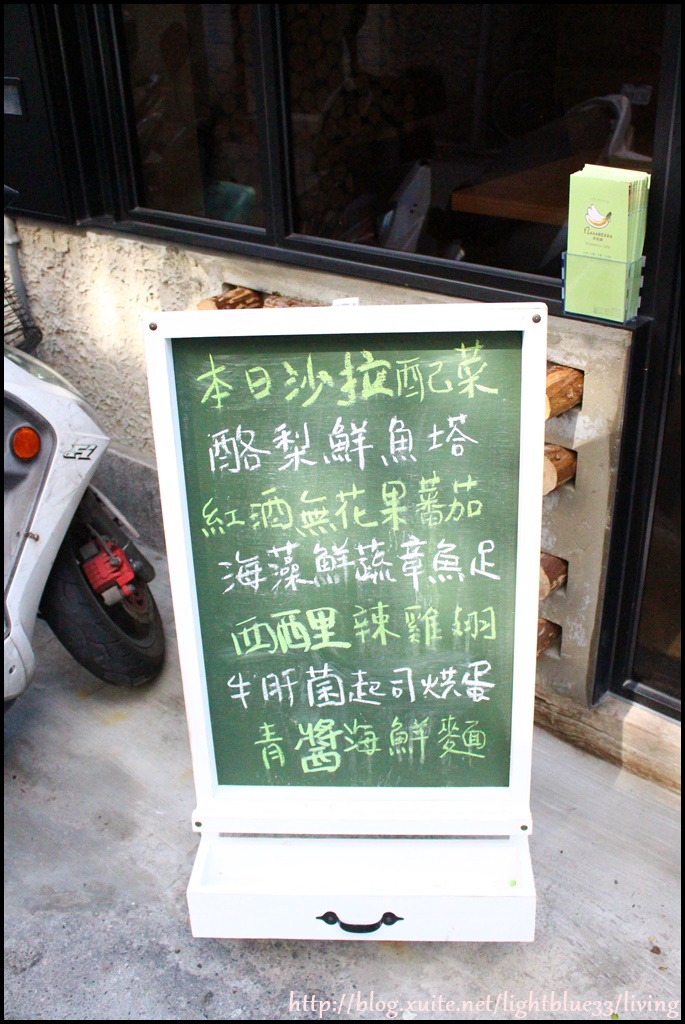 本日沙拉配菜
酪梨鮮魚塔
紅酒無花果蕃茄
海藻鮮蔬章魚足
西酲辣雞翅
牛肝菌起司烘蛋
青醬海鮮麵
http://blog.xuite.net/lightblue33/living